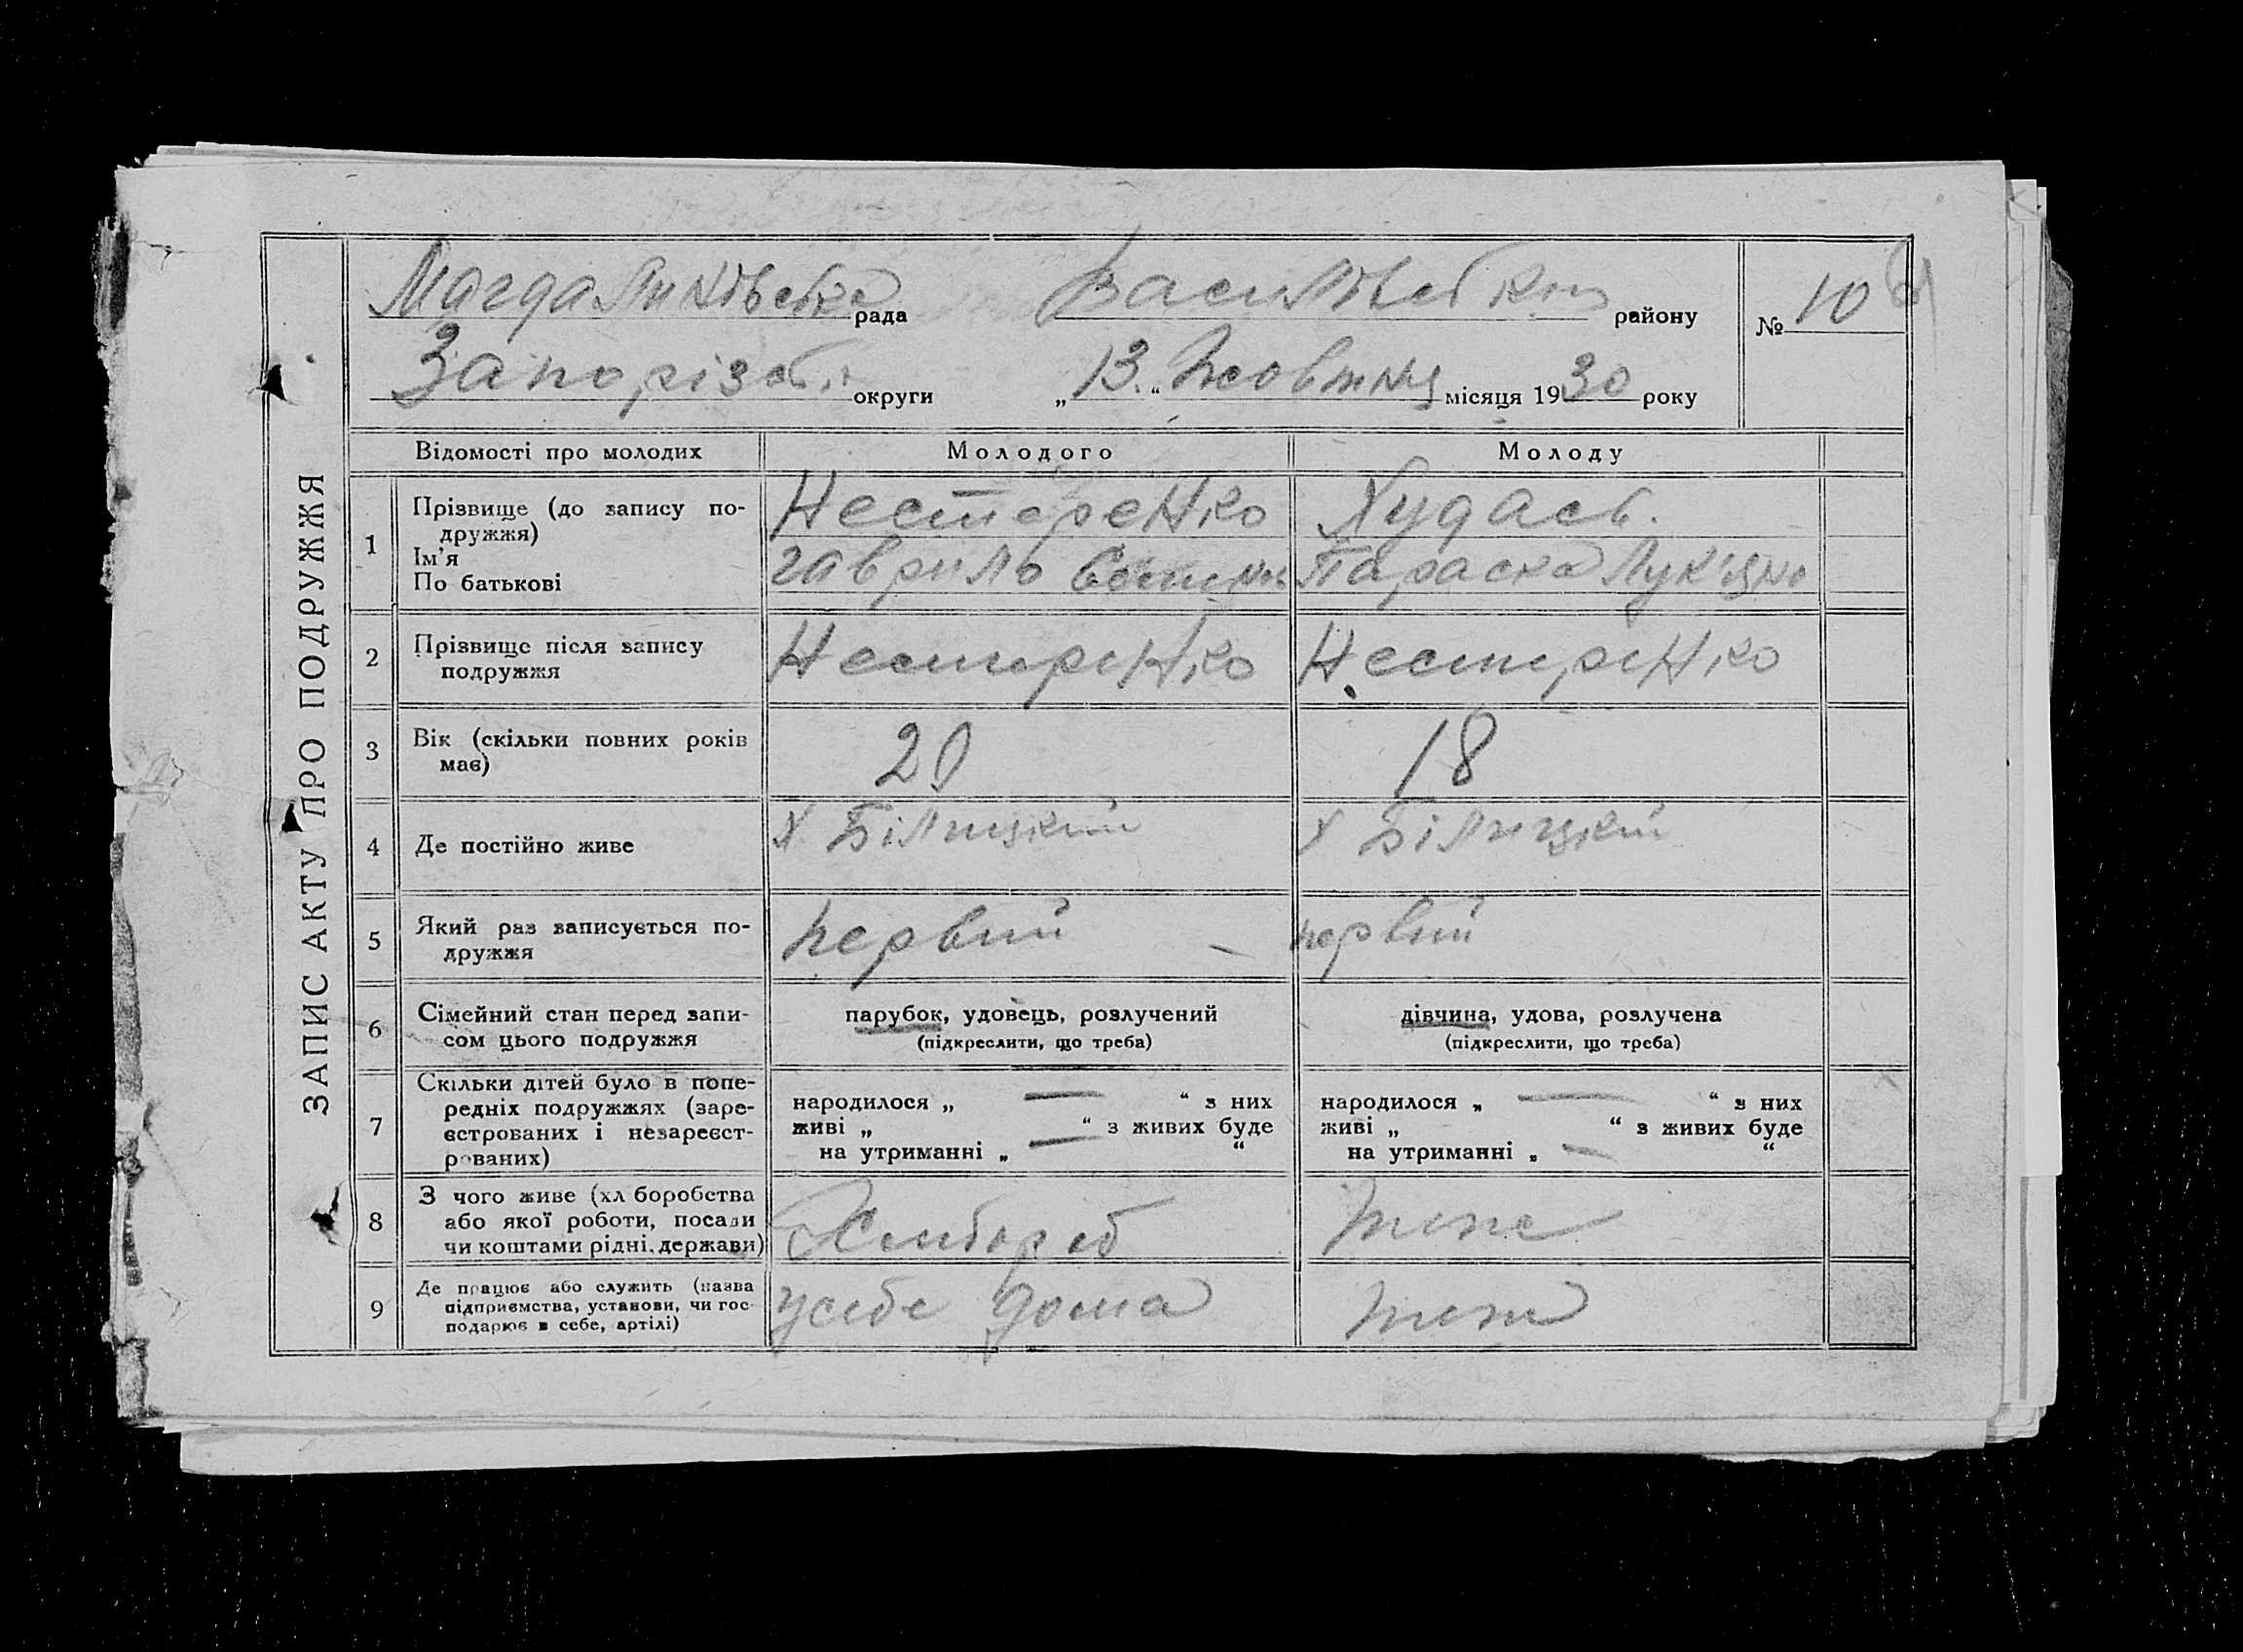 ЗАПИС АКТУ ПРО ПОДРУЖЖЯ
Магдалинівська рада Василівський району № 10
Запорізьк округи „13.“ Жовтня місяця 1930 року
Відомості про молодих Молодого Молоду
1 Прізвище (до запису по-
дружжя) Нестеренко Худась.
Ім’я
По батькові гаврило Парасна Лук'яно
2 Прізвище після запису
подружжя Нестеренко Нестеренко
3 Вік (скільки повних років
має) 20 18
4 Де постійно живе х Біляцкий х Біляцкий
5 Який раз записується по-
дружжя первий первий
6 Сімейний стан перед запи-
сом цього подружжя
парубок, удовець, розлучений дівчина, удова, розлучена
(підкреслити, що треба) (підкреслити, що треба)
7 Скільки дітей було в попе-
редніх подружжях (заре-
єстрованих і незареєст-
рованих)
народилося „ — “ з них народилося „ — “ з них
живі „ “ з живих буде живі „ “ з живих буде
на утриманні „ — “ на утриманні „ — “
8 З чого живе (хліборобства
або якої роботи, посади
чи коштами рідні, держави) Хлибороб тоже
9 Де працює або служить (назва
підприємства, установи, чи гос-
подарює в себе, артілі) усебе дома тож